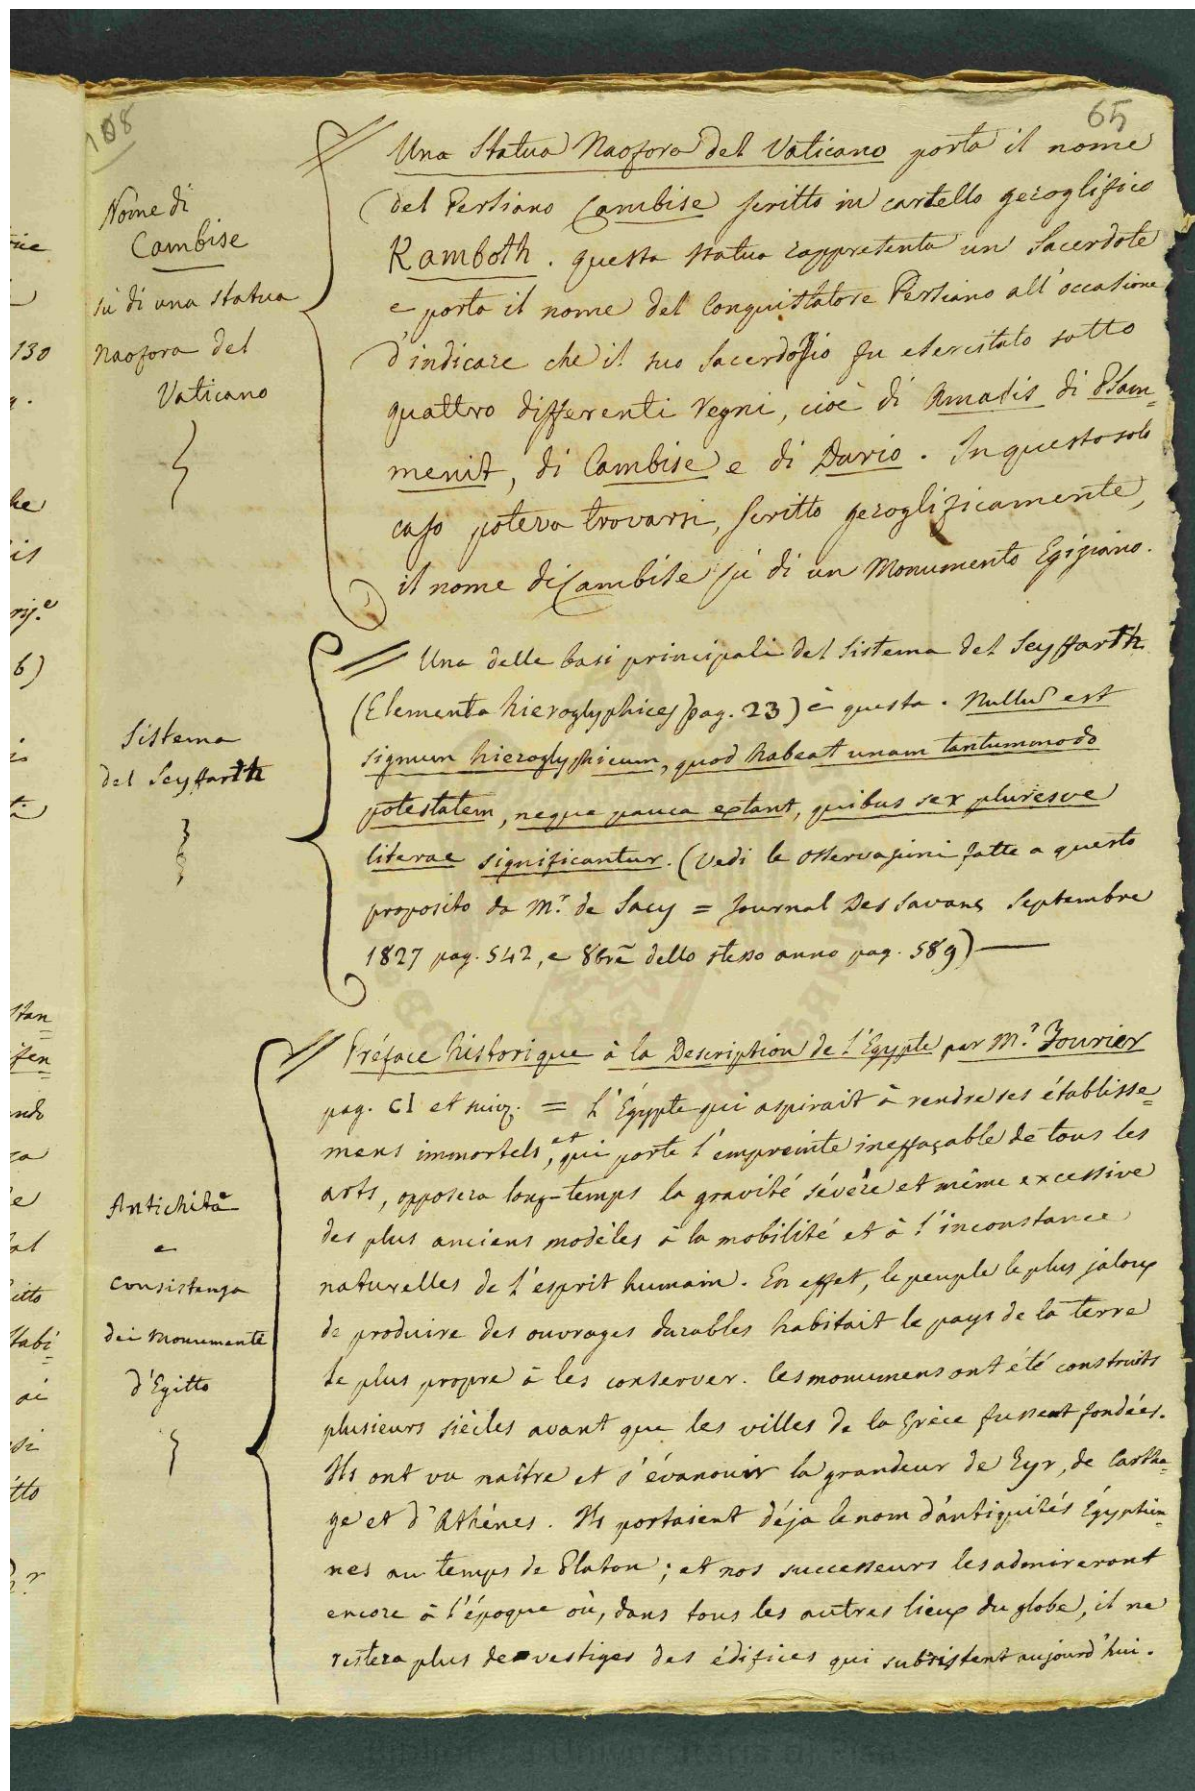 108
65
Nome di
Cambise
sù di una statua
naofora del
Vaticano
Una Statua Naofora del Vaticano porta il nome
del Persiano Cambise scritto in cartello geroglifico
Kamboth. questa statua rappresenta un Sacerdote
e porta il nome del Conquistatore Persiano all'occasione
d'indicare che il suo Sacerdozio fu esercitato sotto
quattro differenti Regni, cioè di Amasis di Psam=
menit, di Cambise e di Dario. In questo solo
caso poteva trovarsi, scritto geroglificamente,
il nome di Cambise sù di un Monumento Egiziano.
Sistema
del Seyffarth
Una delle basi principali del Sistema del Seyffarth
(Elementa hieroglyphices pag. 23) è questa. Nullum est
signum hieroglyphicum, quod habeat unam tantummodo
potestatem, neque pauca extant, quibus sex pluresve
literae significantur. (Vedi le osservazioni fatte a questo
proposito da Mr. de Sacy = Journal Des Savans Septembre
1827 pag. 542, e 8bre dello stesso anno pag. 589)
Antichità
e
consistenza
dei Monumente
d'Egitto
Préface historique à la Description de l'Egypte par Mr. Fourier
pag. CI et suiv. = L'Égypte qui aspirait à rendre ses établisse=
mens immortels, et qui porte l'empreinte ineffaçable de tous les
arts, opposera long-temps la gravité sévère et même excessive
des plus anciens modèles à la mobilité et à l'inconstance
naturelles de l'esprit humain. En effet, le peuple le plus jaloux
de produire des ouvrages durables habitait le pays de la terre
le plus propre à les conserver. les monumens ont été construits
plusieurs siècles avant que les villes de la Grèce fussent fondées.
Ils ont vu naître et s'évanouir la grandeur de Tyr, de Cartha=
ge et d'Athénes. Ils portaient déja le nom d'antiquités Égyptien=
nes au temps de Platon; et nos successeurs les admireront
encore à l'époque où, dans tous les autres lieux du globe, il ne
restera plus de vestiges des édifices qui subsistent aujourd'hui.